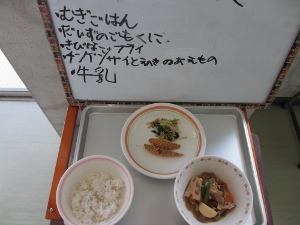 むぎごはん
だいずのごもくに
きびなごフライ
チンゲンサイとえのきのおえもの
牛乳